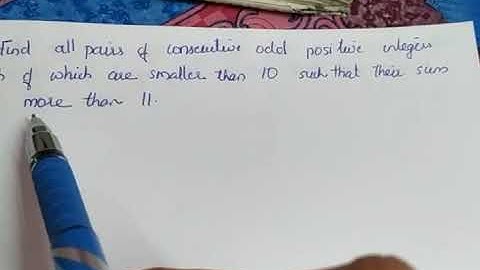 Find all pairs of consecutive odd positive integers
of which are smaller than 10 such that their sum
more than 11.